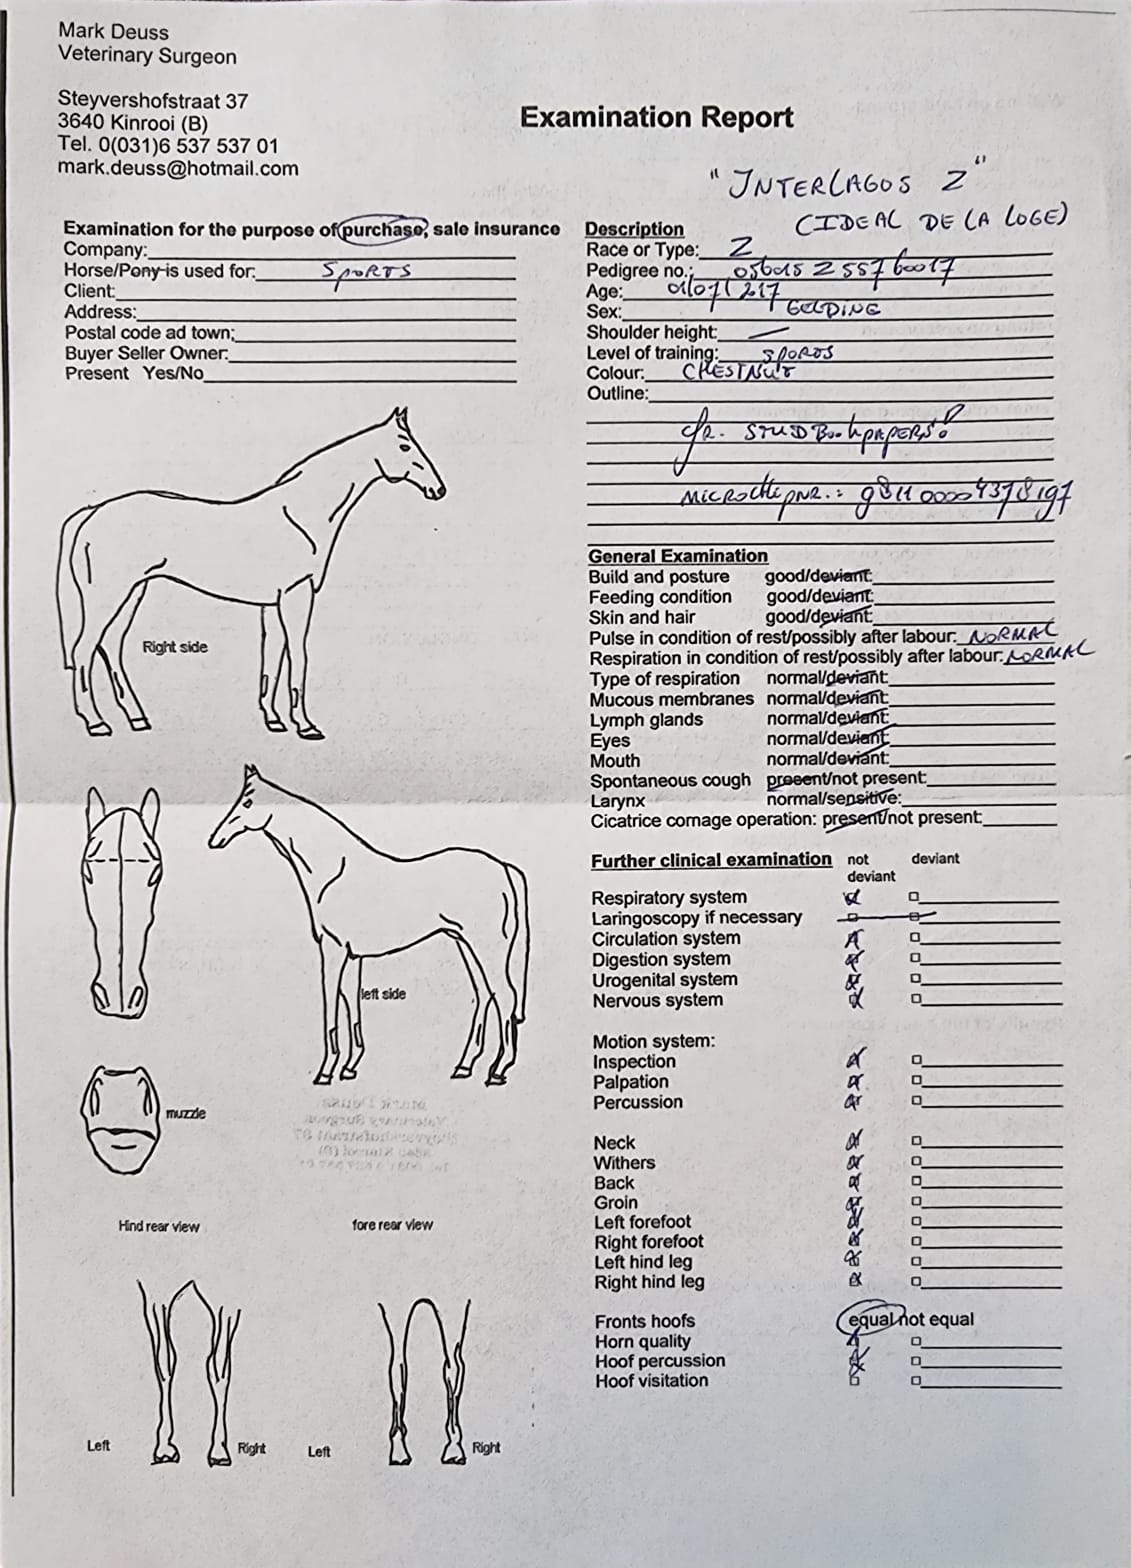 Mark Deuss
Veterinary Surgeon
Steyvershofstraat 37
3640 Kinrooi (B)
Tel. 0(031)6 537 537 01
mark.deuss@hotmail.com
Examination Report
"INTERLAGOS Z"
(IDEAL DE LA LOGE)
Examination for the purpose of purchase, sale insurance
Company:
Horse/Pony is used for: SPORTS
Client:
Address:
Postal code ad town;
Buyer Seller Owner:
Present Yes/No
Description
Race or Type: Z
Pedigree no.: 056015Z55760017
Age: 01/07/217
Sex: GELDING
Shoulder height: —
Level of training: SPORTS
Colour: CHESTNUT
Outline:
STUDBookpapers!
MICROCHIPNR.: 981100004378197
Right side
left side
muzzle
Hind rear view
fore rear view
Left
Right
Left
Right
General Examination
Build and posture good/deviant:
Feeding condition good/deviant:
Skin and hair good/deviant:
Pulse in condition of rest/possibly after labour: NORMAL
Respiration in condition of rest/possibly after labour: NORMAL
Type of respiration normal/deviant:
Mucous membranes normal/deviant:
Lymph glands normal/deviant:
Eyes normal/deviant:
Mouth normal/deviant:
Spontaneous cough present/not present:
Larynx normal/sensitive:
Cicatrice cornage operation: present/not present:
Further clinical examination not deviant
deviant
Respiratory system
Laringoscopy if necessary
Circulation system
Digestion system
Urogenital system
Nervous system
Motion system:
Inspection
Palpation
Percussion
Neck
Withers
Back
Groin
Left forefoot
Right forefoot
Left hind leg
Right hind leg
Fronts hoofs equal/not equal
Horn quality
Hoof percussion
Hoof visitation